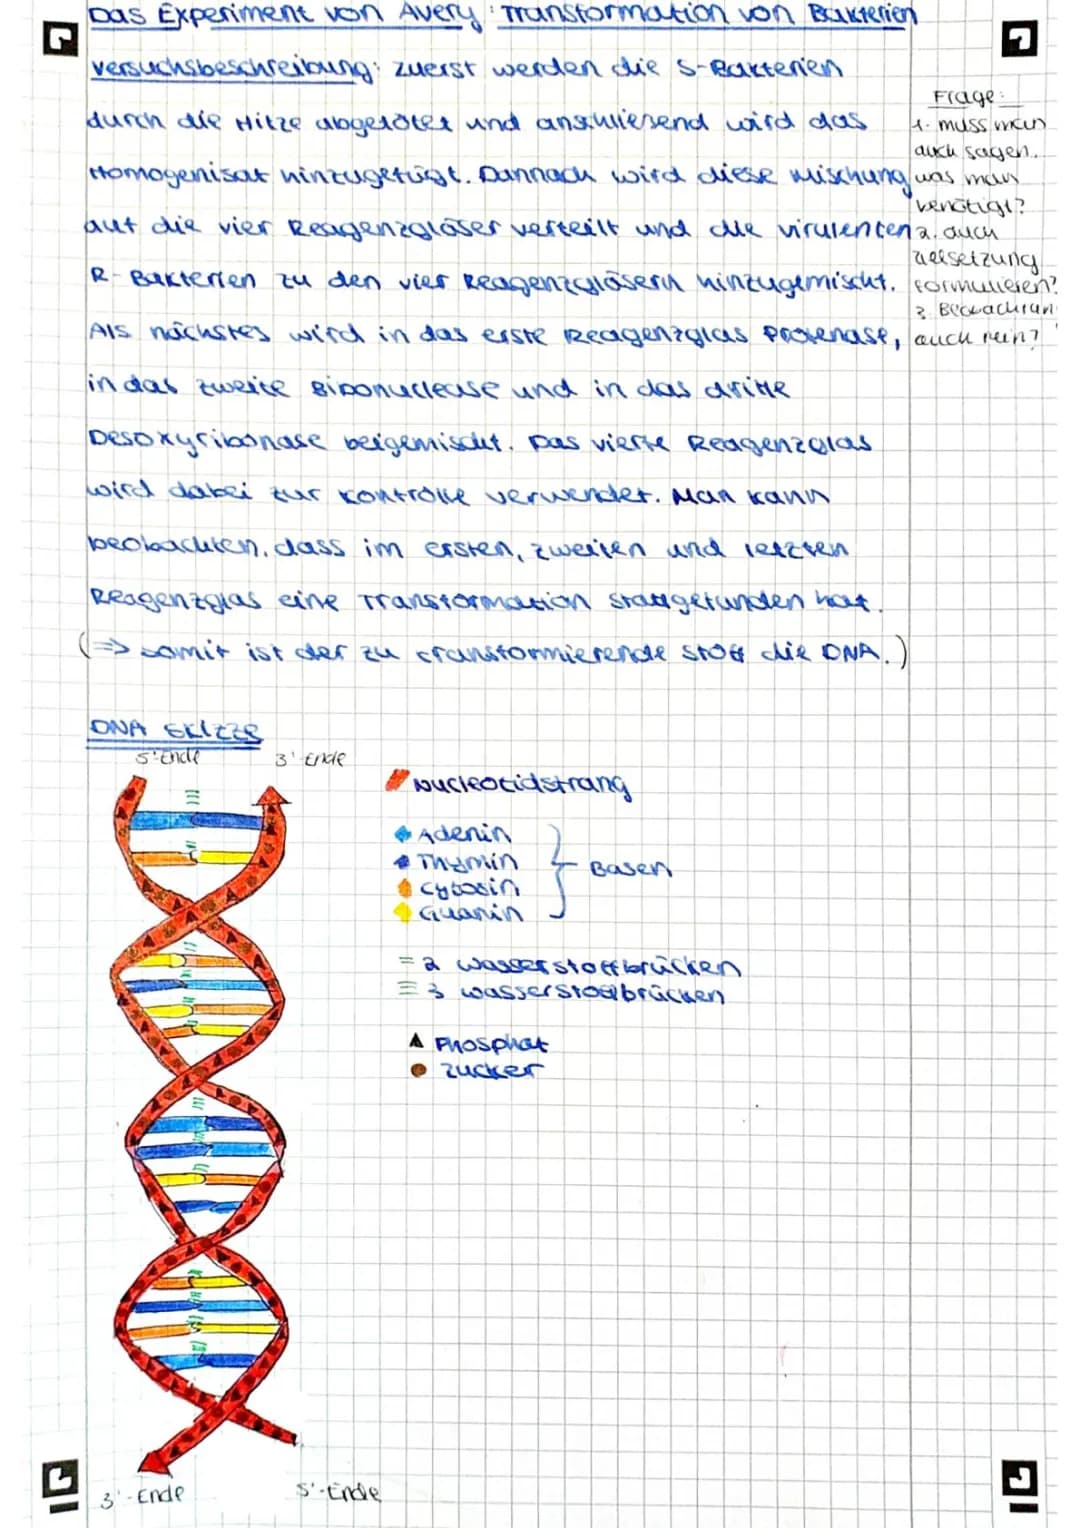 Das Experiment von Avery: Transformation von Bakterien
Versuchsbeschreibung: zuerst werden die S-Bakterien
durch die Hitze abgetötet und anschliesend wird das
Homogenisat hinzugefügt. Dannach wird diese Mischung
auf die vier Reagenzgläser verteilt und die virulenten
R-Bakterien zu den vier Reagenzgläsern hinzugemischt.
Als nächstes wird in das erste Reagenzglas Protenase,
in das zweite Riponuclease und in das dritte
Desoxyribonase beigemischt. Das vierte Reagenzglas
wird dabei zur Kontrolle verwendet. Man kann
beobachten, dass im ersten, zweiten und letzten
Reagenzglas eine Transformation stattgefunden hat.
(=> somit ist der zu transformierende Stoff die DNA.)
Frage:
1. muss man
auch sagen,
was man
benötigt?
2. auch
zielsetzung
formulieren?
3. Beobachtun
auch rein?
DNA SKIZZE
5'-Ende 3'-Ende
Nucleotidstrang
Adenin
Thymin
Cytosin
Guanin
Basen
= 2 wasserstoffbrücken
≡ 3 wasserstoffbrücken
Phosphat
Zucker
3'-Ende 5'-Ende